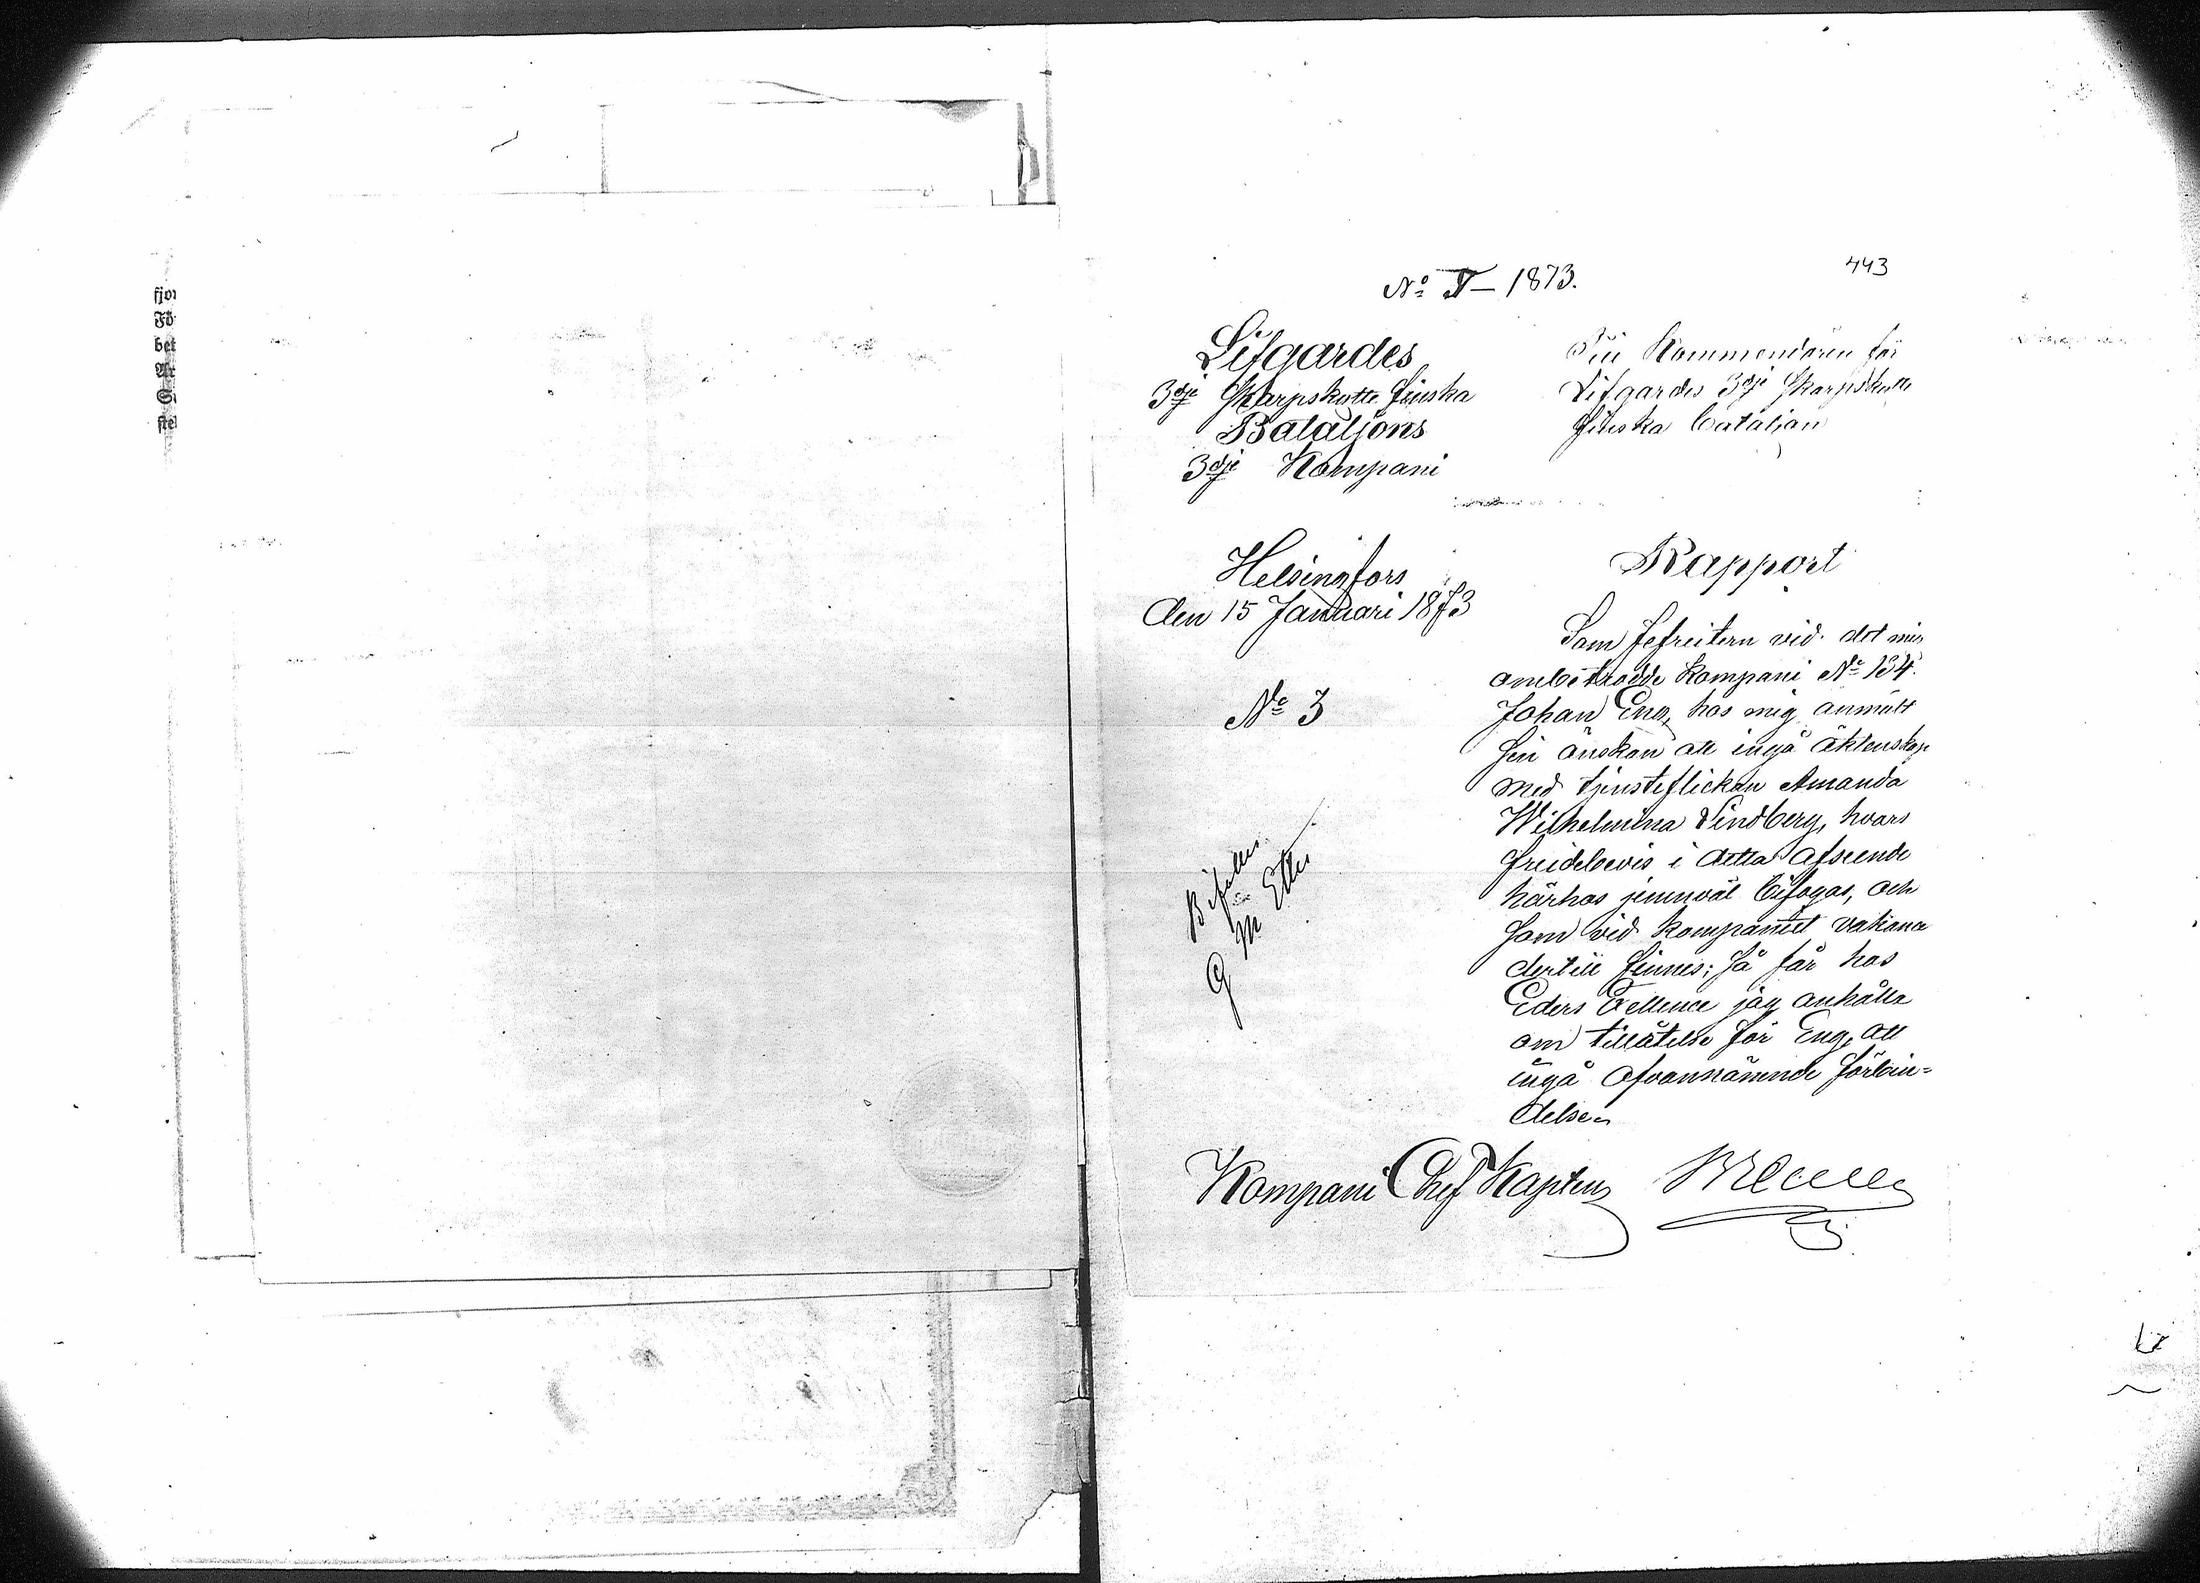 fjor
Fö
bet
Ar
ste
443
No I – 1873.
Lifgardes
3dje Skarpskytte Finska
Bataljons
3dje Kompani
Till Kommendören för
Lifgardes 3dje Skarpskytte
Finska Bataljon
Helsingfors
den 15 Januari 1873
No 3
Bifalles
G M Etter
Rapport
Som Gefreitern vid det mig
ombetrodde kompani No 134
Johan Eng, hos mig anmält
sin önskan att ingå äktenskap
med tjensteflickan Amanda
Wilhelmina Lindberg, hvars
frejdebevis i detta afseende
härhos jemnväl bifogas, och
som vid kompaniet vakans
dertill finnes; så får hos
Eders Excellence jag anhålla
om tillåtelse för Eng, att
ingå ofvannämnde förbin=
delse
Kompani Chef Kapten